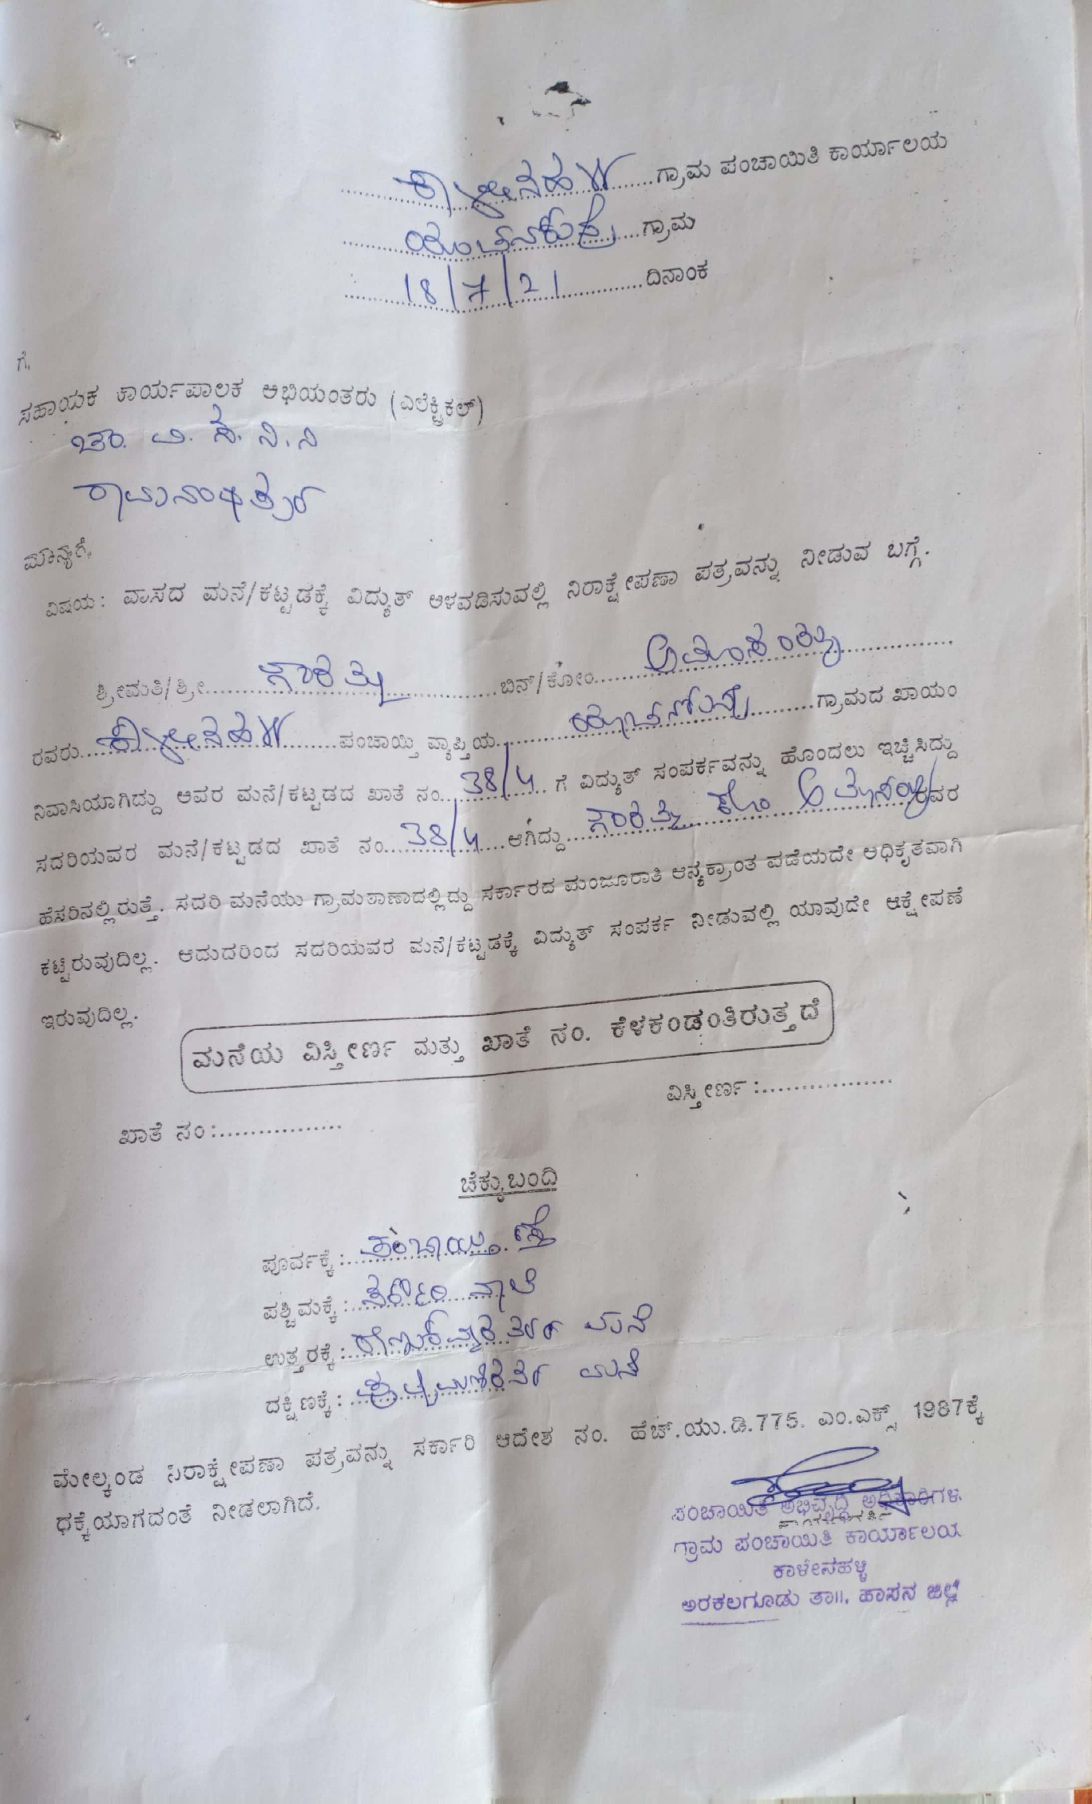 ಕಾಳೇನಹಳ್ಳಿ ಗ್ರಾಮ ಪಂಚಾಯಿತಿ ಕಾರ್ಯಾಲಯ
ಗ್ರಾಮ
18/7/21 ದಿನಾಂಕ
ಗೆ,
ಸಹಾಯಕ ಕಾರ್ಯಪಾಲಕ ಅಭಿಯಂತರು (ಎಲೆಕ್ಟ್ರಿಕಲ್)
ಚಾ. ವಿ. ಸ. ನಿ. ನಿ
ರಾಮನಾಥಪುರ
ಮಾನ್ಯರೆ,
ವಿಷಯ: ವಾಸದ ಮನೆ/ಕಟ್ಟಡಕ್ಕೆ ವಿದ್ಯುತ್ ಅಳವಡಿಸುವಲ್ಲಿ ನಿರಾಕ್ಷೇಪಣಾ ಪತ್ರವನ್ನು ನೀಡುವ ಬಗ್ಗೆ.
ಶ್ರೀಮತಿ/ಶ್ರೀ ಬಿನ್/ಕೋಂ
ರವರು ಕಾಳೇನಹಳ್ಳಿ ಪಂಚಾಯ್ತಿ ವ್ಯಾಪ್ತಿಯ ಗ್ರಾಮದ ಖಾಯಂ
ನಿವಾಸಿಯಾಗಿದ್ದು ಅವರ ಮನೆ/ಕಟ್ಟಡದ ಖಾತೆ ನಂ. 38/4 ಗೆ ವಿದ್ಯುತ್ ಸಂಪರ್ಕವನ್ನು ಹೊಂದಲು ಇಚ್ಚಿಸಿದ್ದು
ಸದರಿಯವರ ಮನೆ/ಕಟ್ಟಡದ ಖಾತೆ ನಂ. 38/4 ಆಗಿದ್ದು ಕೋಂ ರವರ
ಹೆಸರಿನಲ್ಲಿರುತ್ತೆ. ಸದರಿ ಮನೆಯು ಗ್ರಾಮಠಾಣಾದಲ್ಲಿದ್ದು ಸರ್ಕಾರದ ಮಂಜೂರಾತಿ ಅನ್ಯಕ್ರಾಂತ ಪಡೆಯದೇ ಅಧಿಕೃತವಾಗಿ
ಕಟ್ಟಿರುವುದಿಲ್ಲ. ಆದುದರಿಂದ ಸದರಿಯವರ ಮನೆ/ಕಟ್ಟಡಕ್ಕೆ ವಿದ್ಯುತ್ ಸಂಪರ್ಕ ನೀಡುವಲ್ಲಿ ಯಾವುದೇ ಆಕ್ಷೇಪಣೆ
ಇರುವುದಿಲ್ಲ.
ಮನೆಯ ವಿಸ್ತೀರ್ಣ ಮತ್ತು ಖಾತೆ ನಂ. ಕೆಳಕಂಡಂತಿರುತ್ತದೆ
ವಿಸ್ತೀರ್ಣ :
ಖಾತೆ ನಂ :
ಚೆಕ್ಕುಬಂದಿ
ಪೂರ್ವಕ್ಕೆ :
ಪಶ್ಚಿಮಕ್ಕೆ :
ಉತ್ತರಕ್ಕೆ : ಮನೆ
ದಕ್ಷಿಣಕ್ಕೆ : ಮನೆ
ಮೇಲ್ಕಂಡ ನಿರಾಕ್ಷೇಪಣಾ ಪತ್ರವನ್ನು ಸರ್ಕಾರಿ ಆದೇಶ ನಂ. ಹೆಚ್.ಯು.ಡಿ.775. ಎಂ.ಎಕ್ಸ್ 1987ಕ್ಕೆ
ಧಕ್ಕೆಯಾಗದಂತೆ ನೀಡಲಾಗಿದೆ.
ಪಂಚಾಯಿತಿ ಅಭಿವೃದ್ಧಿ ಅಧಿಕಾರಿಗಳು
ಗ್ರಾಮ ಪಂಚಾಯಿತಿ ಕಾರ್ಯಾಲಯ
ಕಾಳೇನಹಳ್ಳಿ
ಅರಕಲಗೂಡು ತಾ॥, ಹಾಸನ ಜಿಲ್ಲೆ